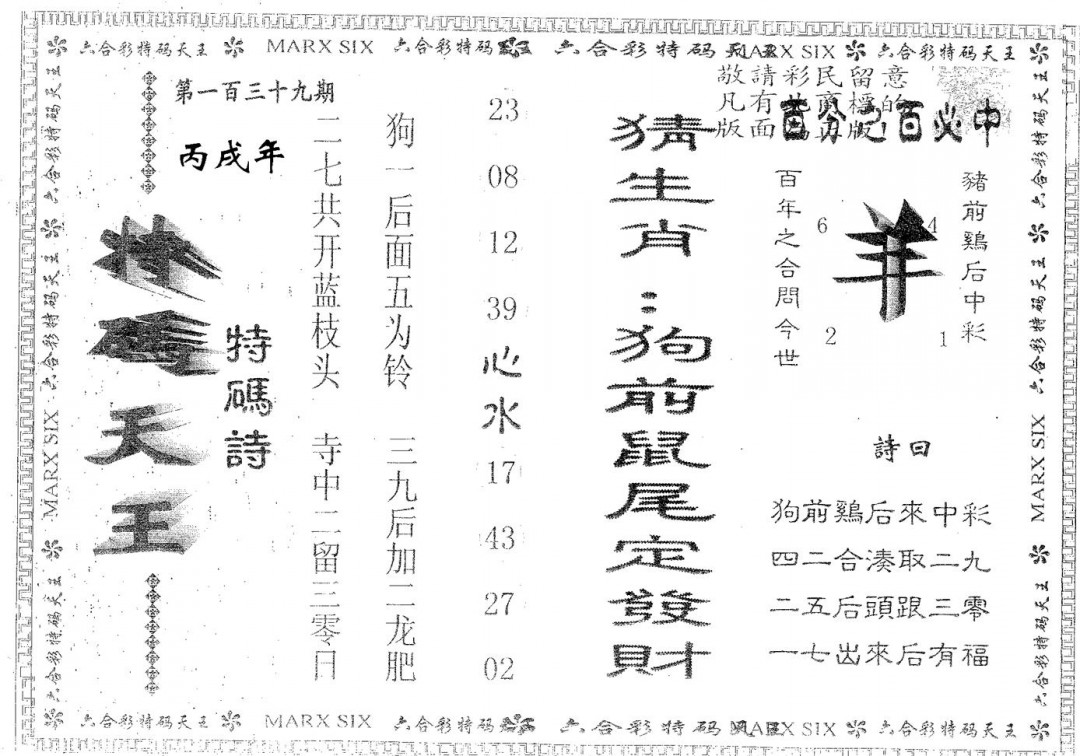 六合彩特码天王 MARX SIX 六合彩特码 六合彩特码 MARX SIX 六合彩特码天王
敬請彩民留意
凡有
的
版面
版!
百分之百必中
第一百三十九期
丙戌年
特碼天王
特碼詩
二七共开蓝枝头 寺中二留三零日
狗一后面五为铃 三九后加二龙肥
23
08
12
39
心水
17
43
27
02
猜生肖:狗前鼠尾定發財
百年之合問今世
6
4
羊
2
1
豬前鷄后中彩
詩曰
狗前鷄后來中彩
四二合湊取二九
二五后頭跟三零
一七出來后有福
六合彩特码天王
六合彩特码天王
MARX SIX
六合彩特码天王
六合彩特码天王
六合彩特码天王
MARX SIX
六合彩特码天王
六合彩特码天王 MARX SIX 六合彩特码 六合彩特码 MARX SIX 六合彩特码天王